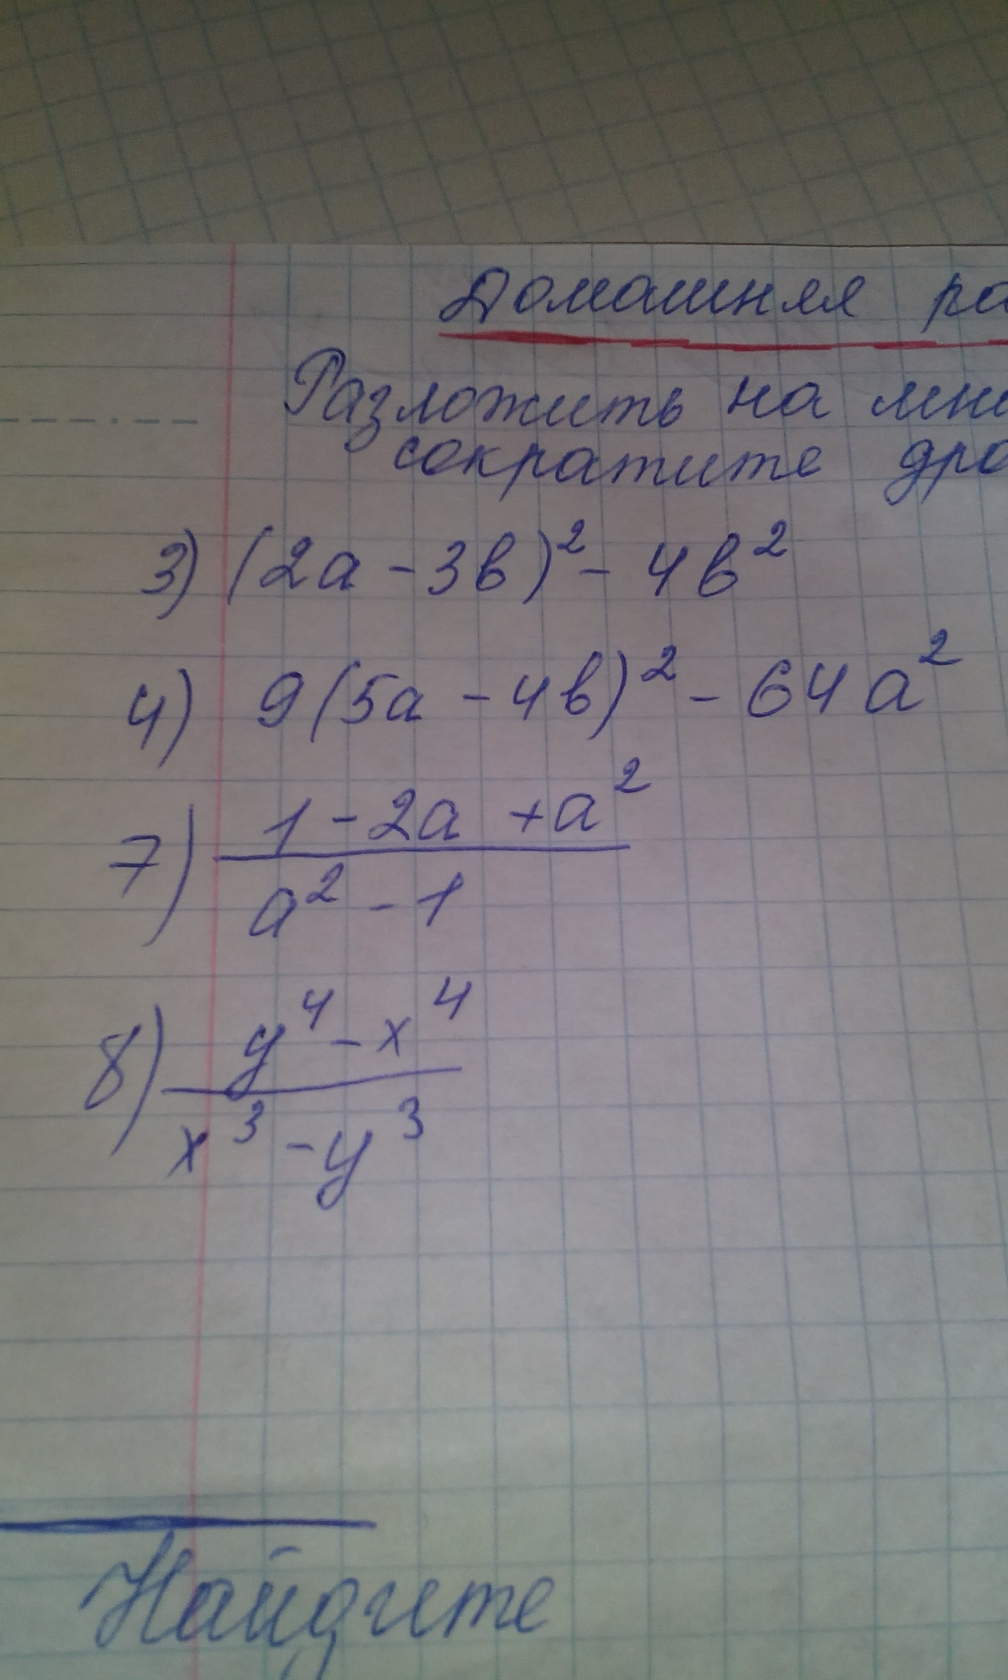 Домашняя ра
Разложить на мно
сократите дро
3) (2a - 3b)² - 4b²
4) 9(5a - 4b)² - 64a²
7) (1 - 2a + a²) / (a² - 1)
8) (y⁴ - x⁴) / (x³ - y³)
Найдите